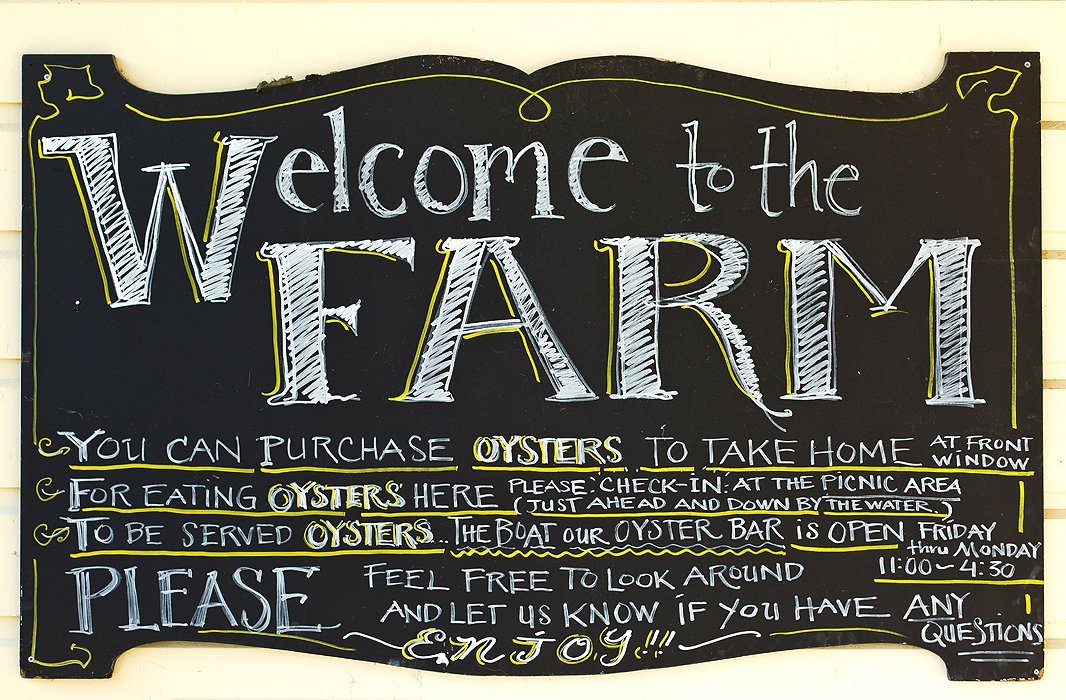 Welcome to the
FARM
YOU CAN PURCHASE OYSTERS TO TAKE HOME AT FRONT WINDOW
FOR EATING OYSTERS HERE PLEASE "CHECK-IN" AT THE PICNIC AREA
(JUST AHEAD AND DOWN BY THE WATER.)
TO BE SERVED OYSTERS.. THE BOAT OUR OYSTER BAR IS OPEN FRIDAY
thru MONDAY
11:00~4:30
PLEASE FEEL FREE TO LOOK AROUND
AND LET US KNOW IF YOU HAVE ANY
QUESTIONS
ENJOY!!!